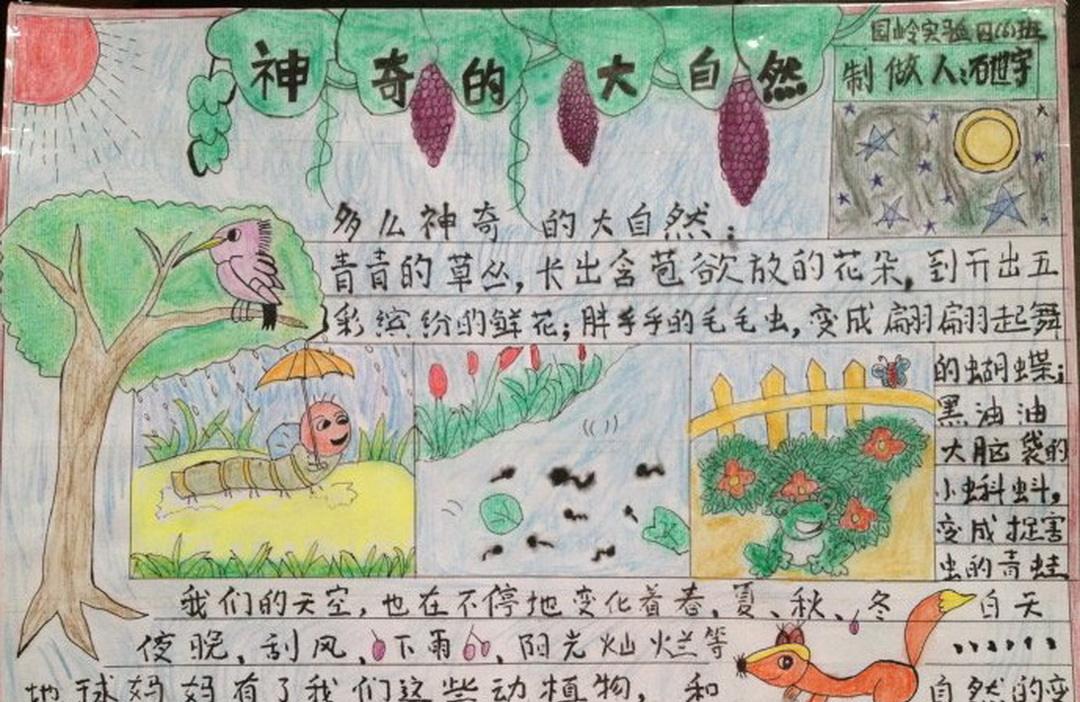 神奇的大自然
园岭实验四(6)班
制做人:石世宇
多么神奇 的大自然:
青青的草丛,长出含苞欲放的花朵,到开出五
彩缤纷的鲜花;胖乎乎的毛毛虫,变成翩翩起舞
的蝴蝶;
黑油油
大脑袋的
小蝌蚪,
变成捉害
虫的青蛙
我们的天空,也在不停地变化着春、夏、秋、冬 白天
夜晚、刮风、下雨、阳光灿烂等 ......
地球妈妈有了我们这些动植物,和 自然的变